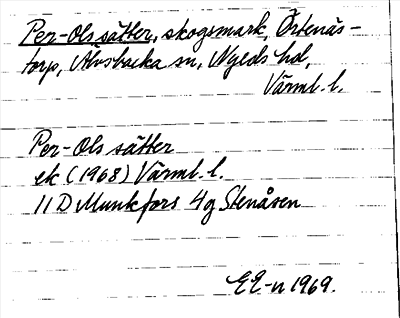 Per-Ols sätter, skogsmark, Örtenäs-
torp, Älvsbacka sn, Nyeds hd,
Värml. l.
Per-Ols sätter
ek (1968) Värml. l.
11 D Munkfors 4g Stenåsen
EE-n 1969.